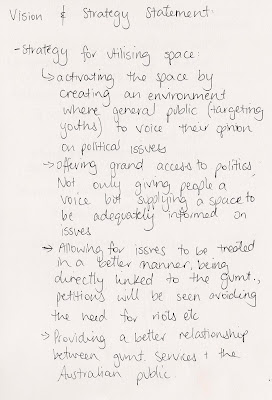 Vision & Strategy Statement:
- Strategy for utilising space:
↳ activating the space by
creating an environment
where general public (targeting
youths) to voice their opinion
on political issues
→ Offering grand access to politics
Not only giving people a
voice but supplying a space to
be adequately informed on
issues
→ Allowing for issues to be treated
in a better manner, being
directly linked to the gvmt.,
petitions will be seen avoiding
the need for riots etc
→ Providing a better relationship
between gvmt. services + the
Australian public.